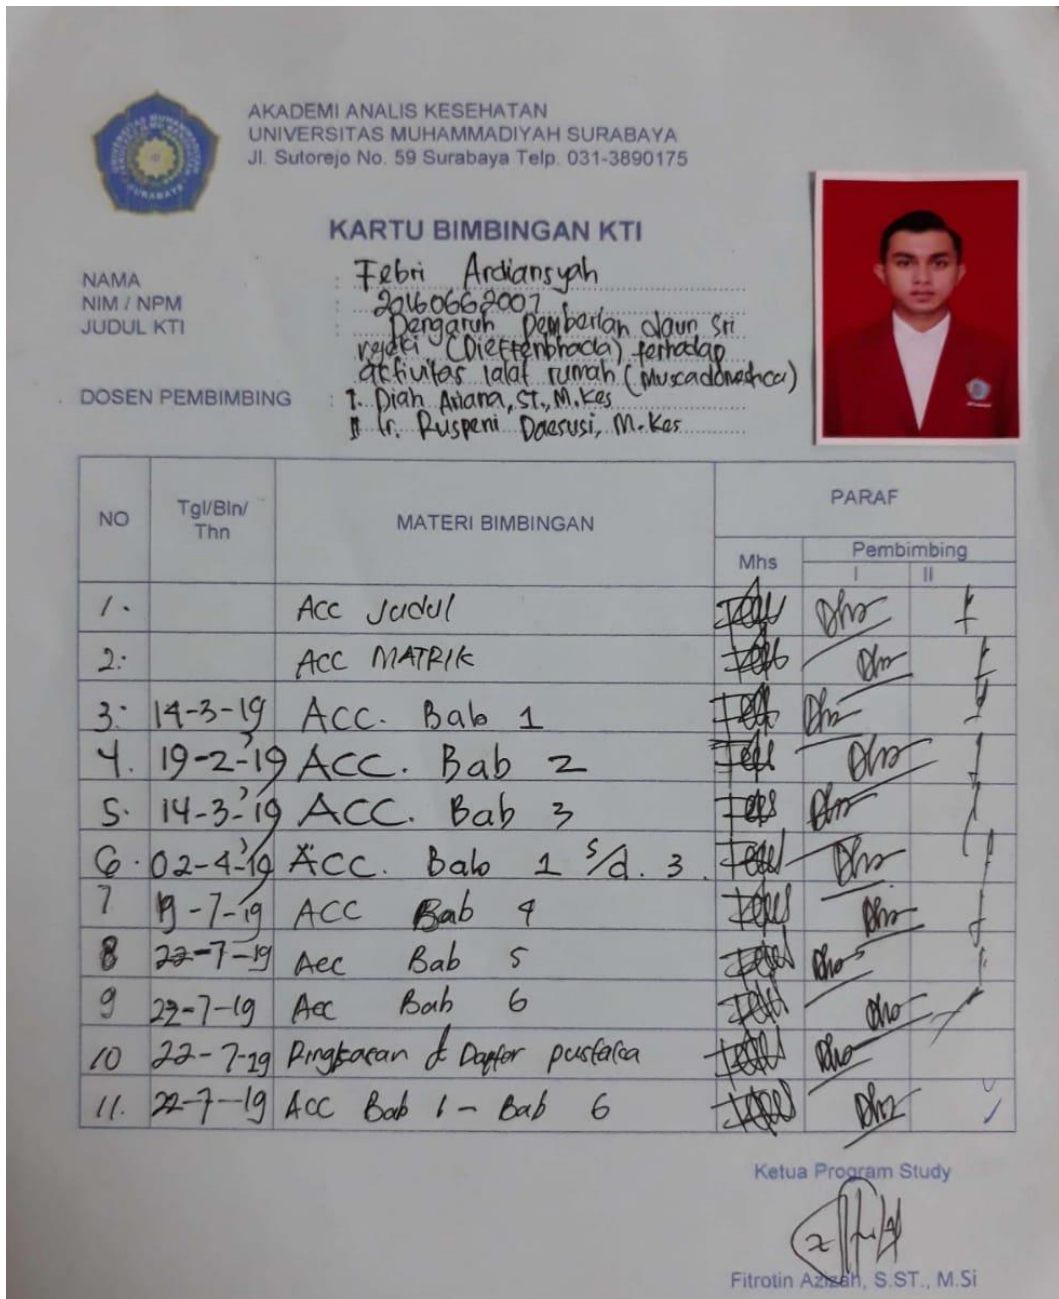 AKADEMI ANALIS KESEHATAN
UNIVERSITAS MUHAMMADIYAH SURABAYA
Jl. Sutorejo No. 59 Surabaya Telp. 031-3890175
KARTU BIMBINGAN KTI
NAMA : Febri Ardiansyah
NIM / NPM : 20160662007
JUDUL KTI : Pengaruh Pemberian daun Sri
rejeki (Dieffenbhacia) terhadap
aktivitas lalat rumah (Muscadomestica)
DOSEN PEMBIMBING : I. Diah Ariana, ST., M.Kes
II Ir. Ruspeni Daesusi, M.Kes
NO Tgl/Bln/Thn MATERI BIMBINGAN PARAF
Mhs Pembimbing
I II
1. Acc Judul
2. ACC MATRIK
3. 14-3-19 ACC. Bab 1
4. 19-2-'19 ACC. Bab 2
5. 14-3-'19 ACC. Bab 3
6. 02-4-'19 ACC. Bab 1 s/d. 3.
7 19-7-19 ACC Bab 4
8 22-7-19 Acc Bab 5
9 22-7-19 Acc Bab 6
10 22-7-19 Ringkasan & Daftar pustaka
11. 22-7-19 ACC Bab 1 - Bab 6
Ketua Program Study
Fitrotin Azizah, S.ST., M.Si